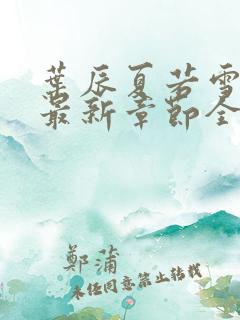 葉辰夏若雪
最新章節全
鄭蒲
未经同意禁止转载